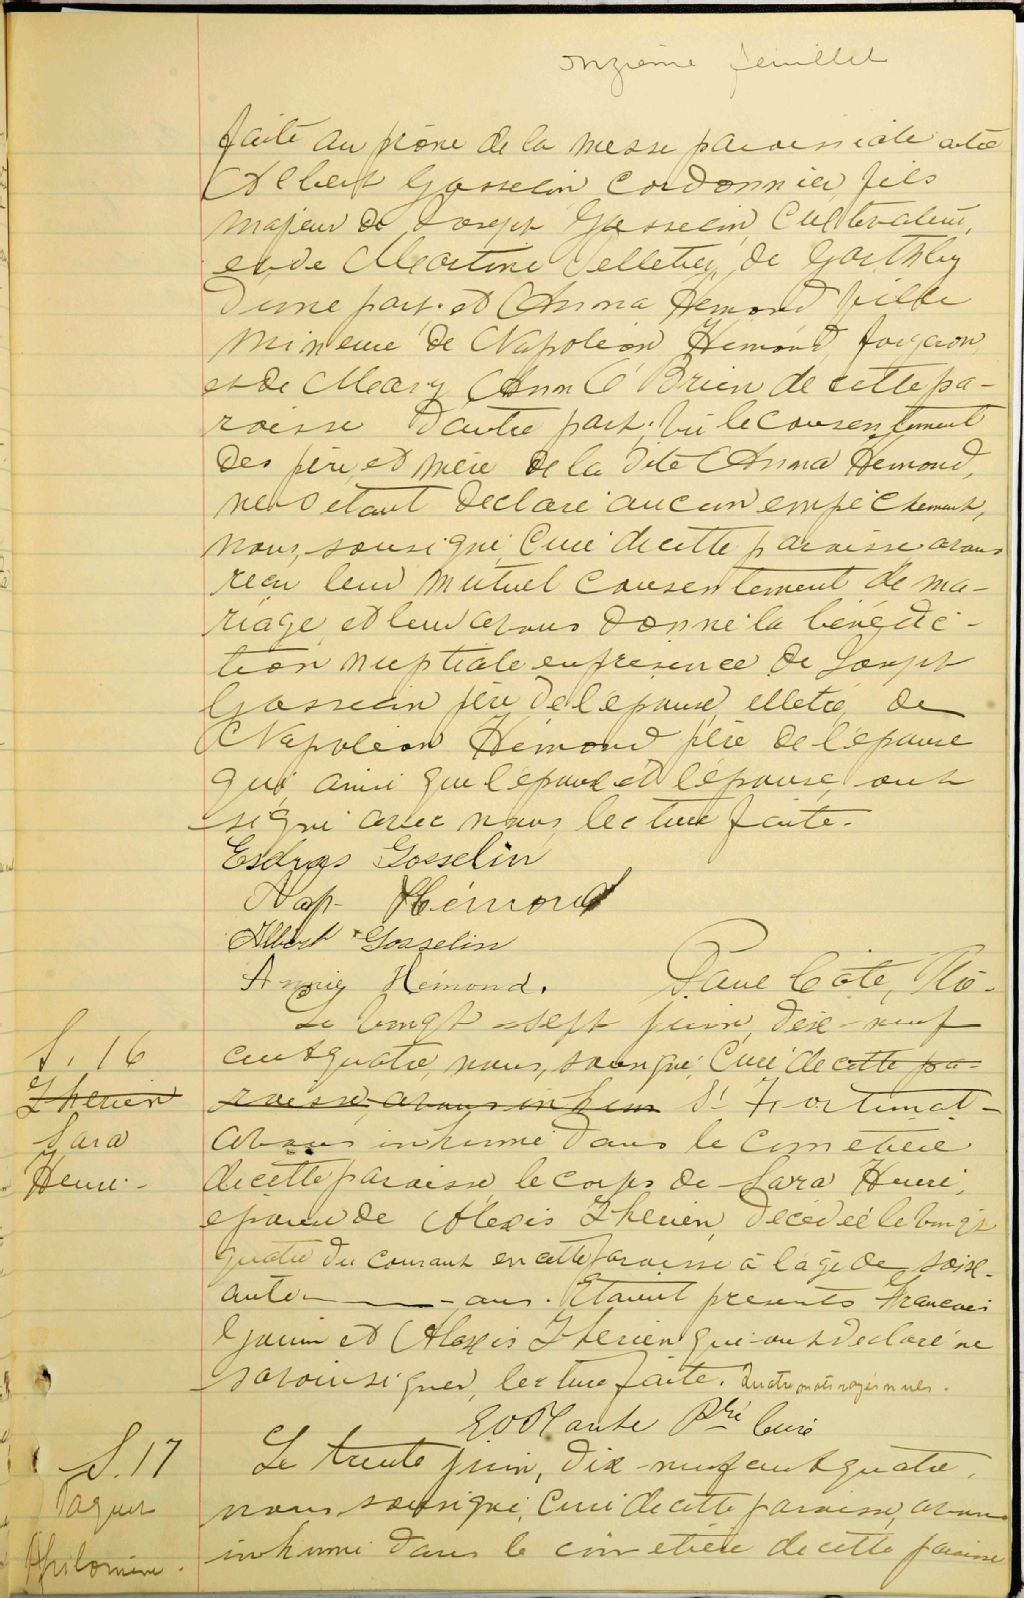 onzième feuillet
faite au prône de la messe paroissiale entre
Albert Gosselin cordonnier, fils
majeur de Joseph Gosselin, Cultivateur,
et de Martine Pelletier, de Garthby
d'une part. et Anna Hémond fille
mineure de Napoléon Hémond forgeron
et de Mary Ann O'Brien de cette pa-
roisse d'autre part. Vu le consentement
des père et mère de la dite Anna Hémond,
ne s'étant déclaré aucun empêchement,
nous, sousigné, Curé de cette paroisse avons
reçu leur mutuel consentement de ma-
riage, et leur avons donné la bénédic-
tion nuptiale en présence de Joseph
Gosselin père de l'époux, de
Napoléon Hémond père de l'épouse
qui, ainsi que l'époux et l'épouse, ont
signé avec nous, lecture faite.
Esdras Gosselin
Nap. Hémond
Albert Gosselin
Annie Hémond.
Paul Côté,
Le vingt-sept juin, dix-neuf
S. 16
cent quatre, nous, sousigné, Curé de cette pa-
Therien
roisse, avons inhum St Fortunat-
Sara
avons inhumé dans le cimetière
Henri.-
de cette paroisse le corps de Sara Henri,
épouse de Alexis Therien, décédée le vingt
quatre du courant en cette paroisse à l'âge de soix-
ante ans. Etaient presents Francois
et Alexis Therien qui ont déclaré ne
savoir signer, lecture faite. Quatre mots rayés nuls.
Ptre Curé
S. 17
Le trente juin, dix-neuf cent quatre,
Paquet
nous sousigné, Curé de cette paroisse, avons
Philomène.
inhumé dans le cimetière de cette paroisse